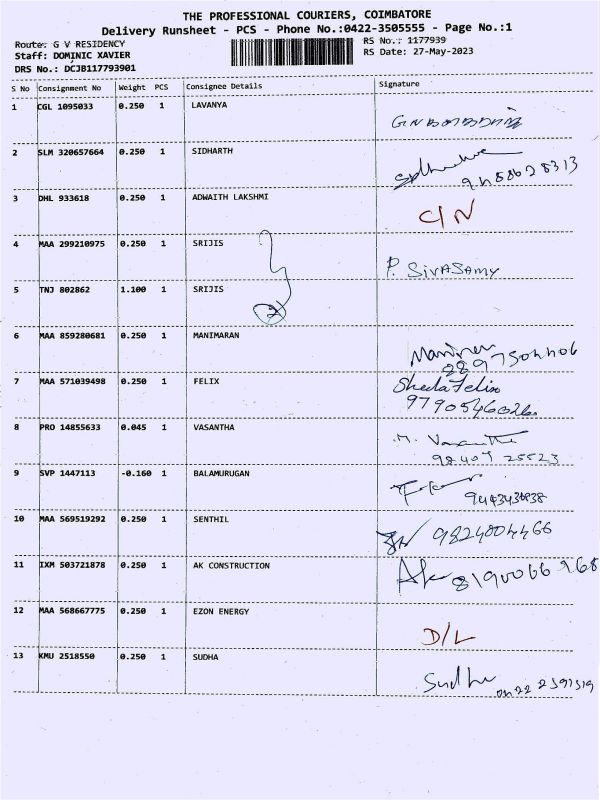 THE PROFESSIONAL COURIERS, COIMBATORE
Delivery Runsheet - PCS - Phone No.:0422-3505555 - Page No.:1
Route: G V RESIDENCY
RS No.: 1177939
Staff: DOMINIC XAVIER
RS Date: 27-May-2023
DRS No.: DCJB117793901
S No Consignment No Weight PCS Consignee Details Signature
1 CGL 1095033 0.250 1 LAVANYA
2 SLM 320657664 0.250 1 SIDHARTH
3 DHL 933618 0.250 1 ADWAITH LAKSHMI
C/N
4 MAA 299210975 0.250 1 SRIJIS
P. SIVASAMY
5 TNJ 802862 1.100 1 SRIJIS
2
6 MAA 859280681 0.250 1 MANIMARAN
7 MAA 571039498 0.250 1 FELIX
Sheela Felix
8 PRO 14855633 0.045 1 VASANTHA
98407 25523
9 SVP 1447113 -0.160 1 BALAMURUGAN
10 MAA 569519292 0.250 1 SENTHIL
9824004466
11 IXM 503721878 0.250 1 AK CONSTRUCTION
12 MAA 568667775 0.250 1 EZON ENERGY
D/L
13 KMU 2518550 0.250 1 SUDHA
Sudha